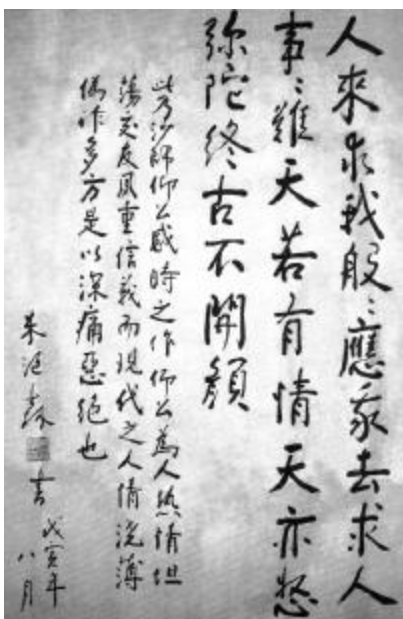 人來求我般〻應我去求人
事〻難天若有情天亦愁
弥陀終古不開顏
此乃沙師仰公感時之作仰公為人熱情坦
蕩交友風重信義而現代之人情澆薄
偽詐多方是以深痛惡絕也
朱
書 戊寅年
八月